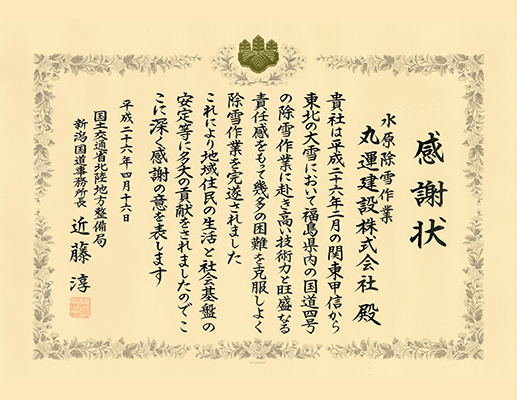 感謝状
水原除雪作業
丸運建設株式会社 殿
貴社は平成二十六年二月の関東甲信から
東北の大雪において福島県内の国道四号
の除雪作業に赴き高い技術力と旺盛なる
責任感をもって幾多の困難を克服しよく
除雪作業を完遂されました
これにより地域住民の生活と社会基盤の
安定等に多大の貢献をされましたのでこ
こに深く感謝の意を表します
平成二十六年四月十六日
国土交通省北陸地方整備局
新潟国道事務所長 近藤 淳